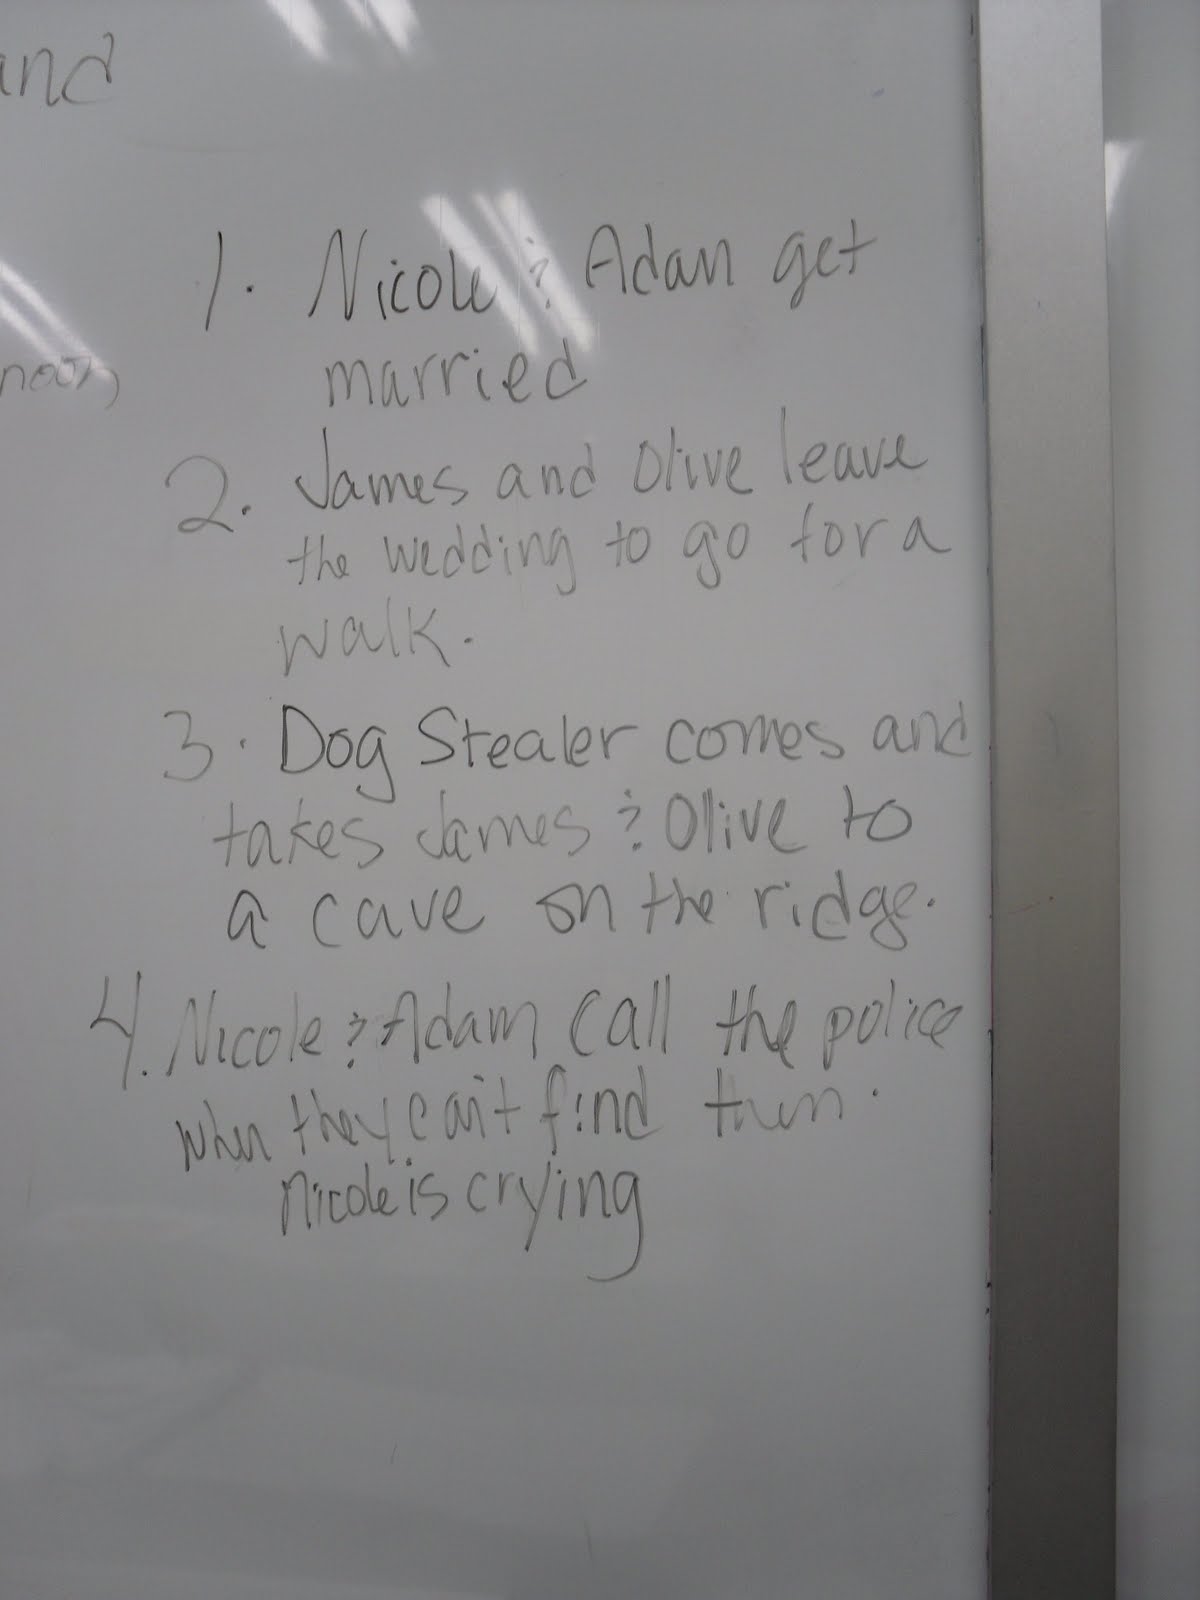 and
noon,
1. Nicole & Adam get
married
2. James and Olive leave
the wedding to go for a
walk.
3. Dog Stealer comes and
takes James & Olive to
a cave on the ridge.
4. Nicole & Adam call the police
when they can't find them.
Nicole is crying